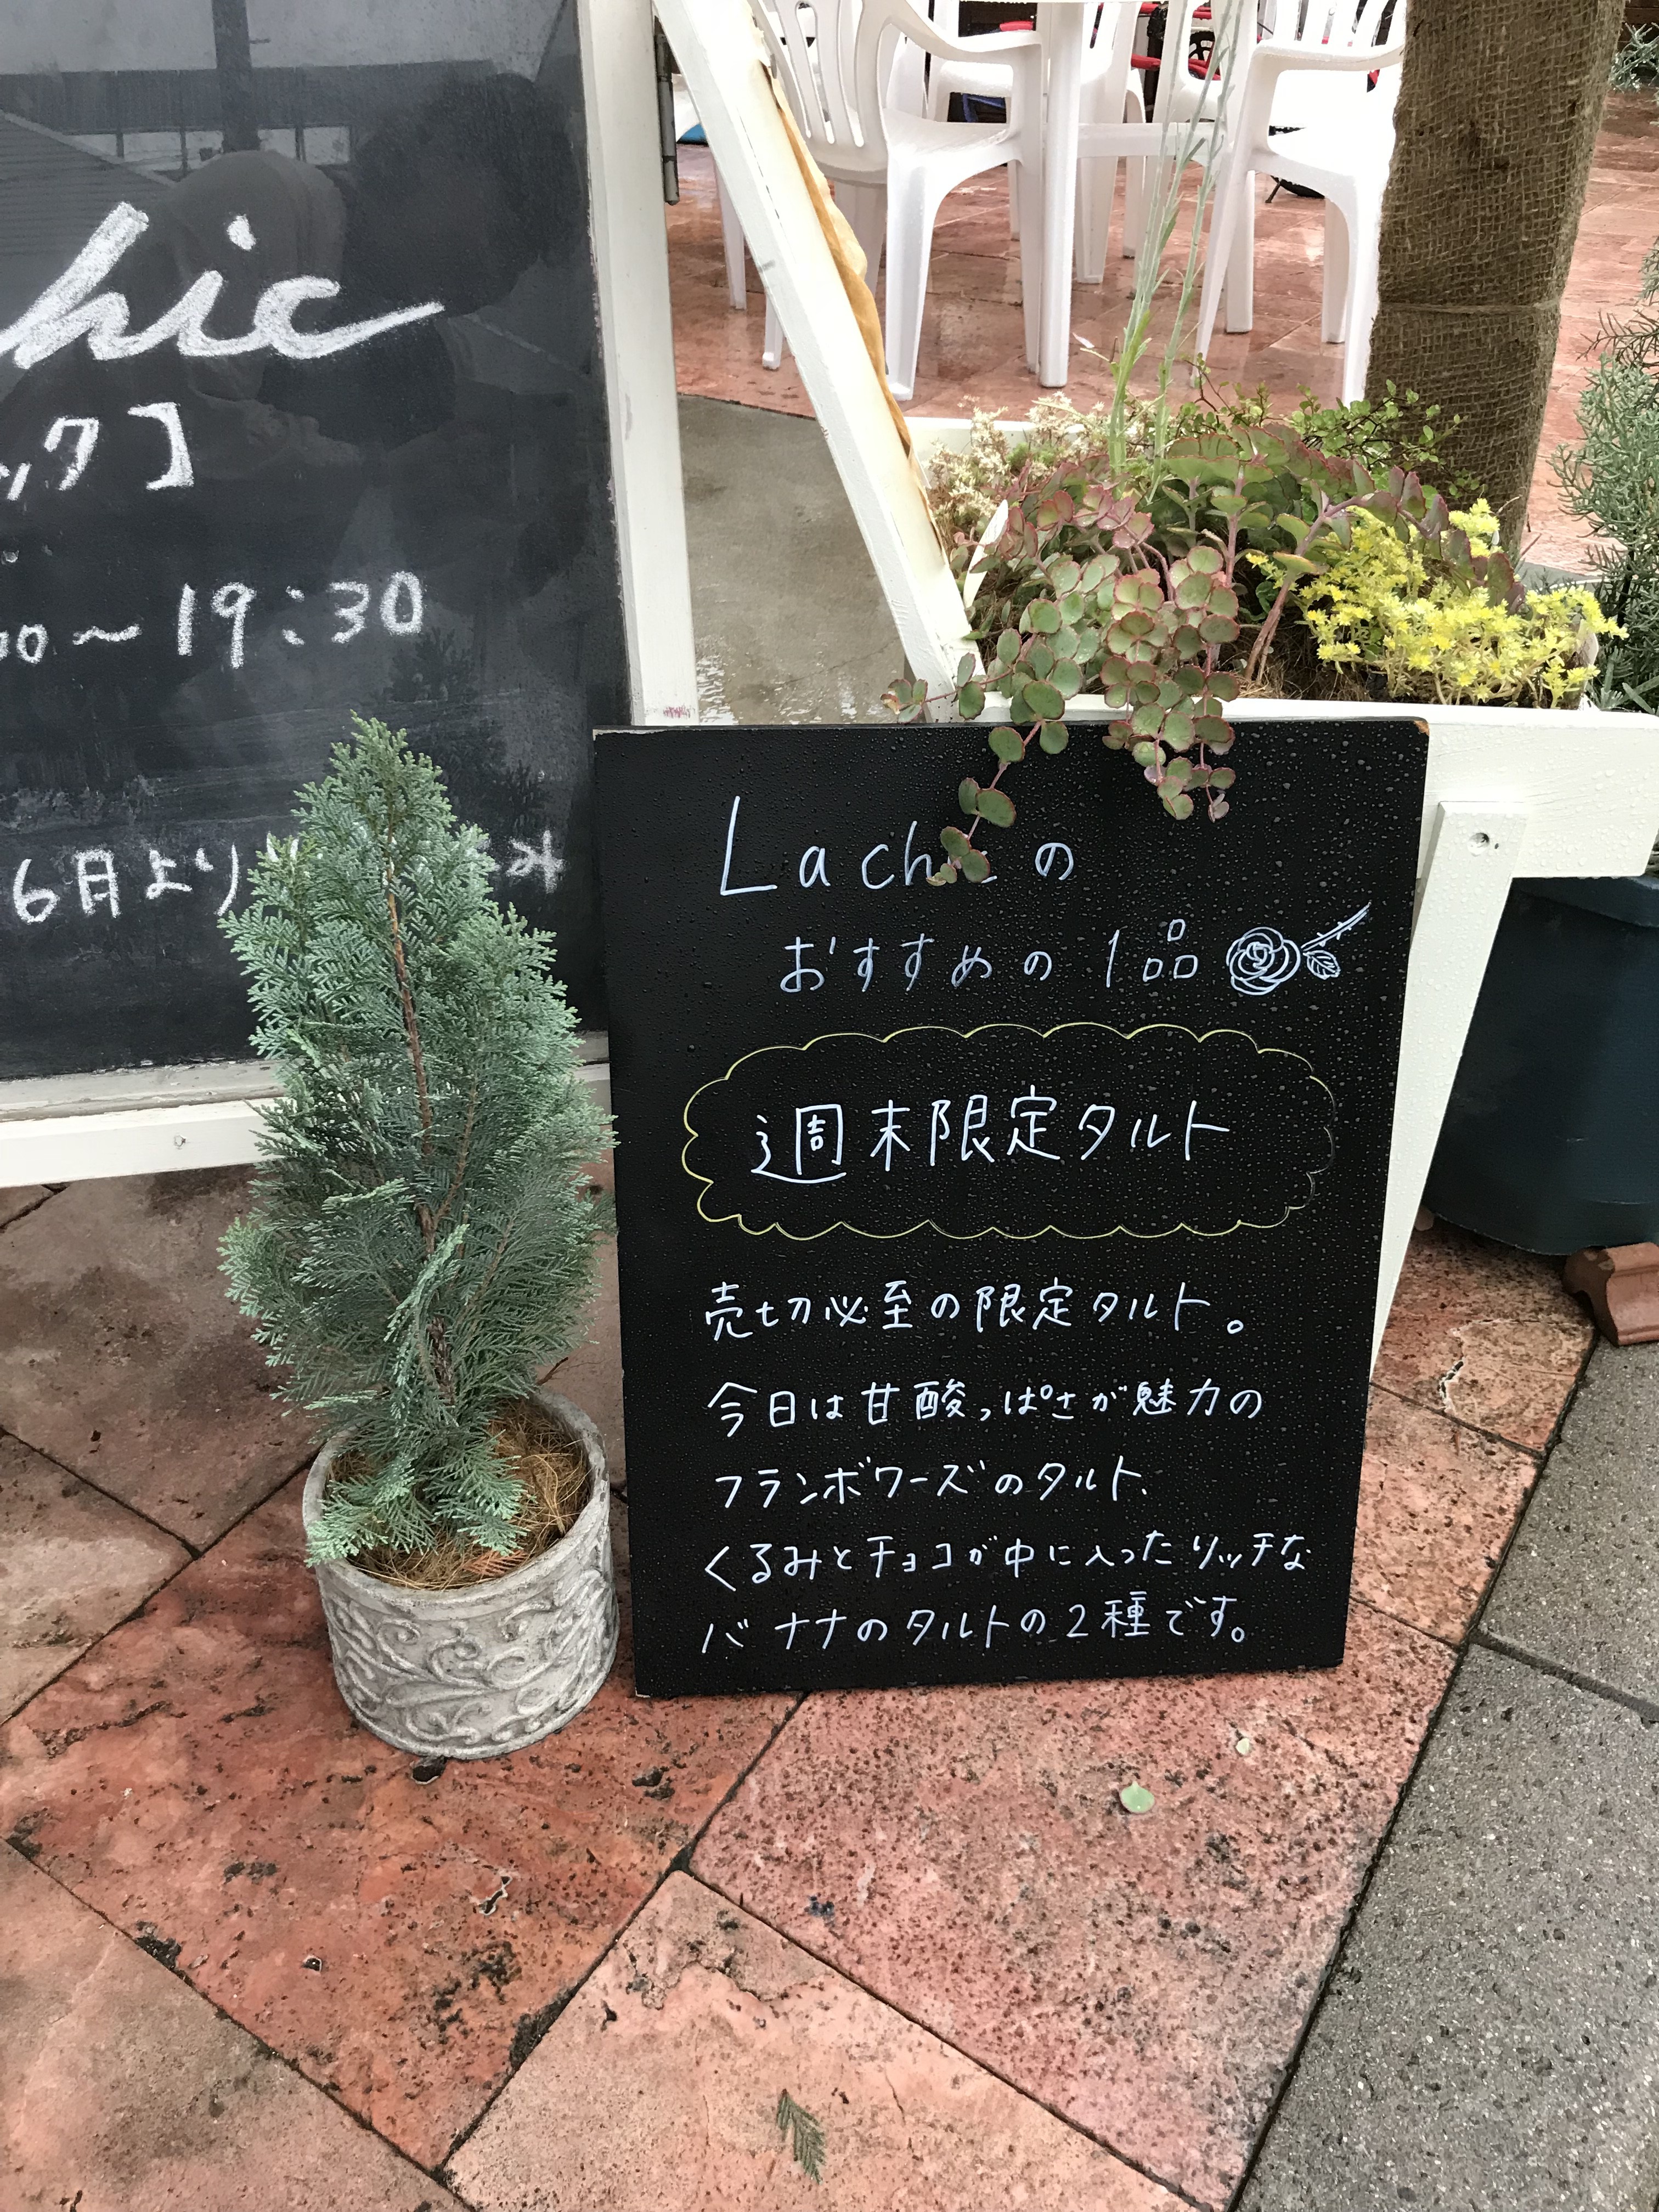 hic
ック】
00〜19:30
6月より
La chicの
おすすめの1品
週末限定タルト
売切必至の限定タルト。
今日は甘酸っぱさが魅力の
フランボワーズのタルト、
くるみとチョコが中に入ったリッチな
バナナのタルトの2種です。